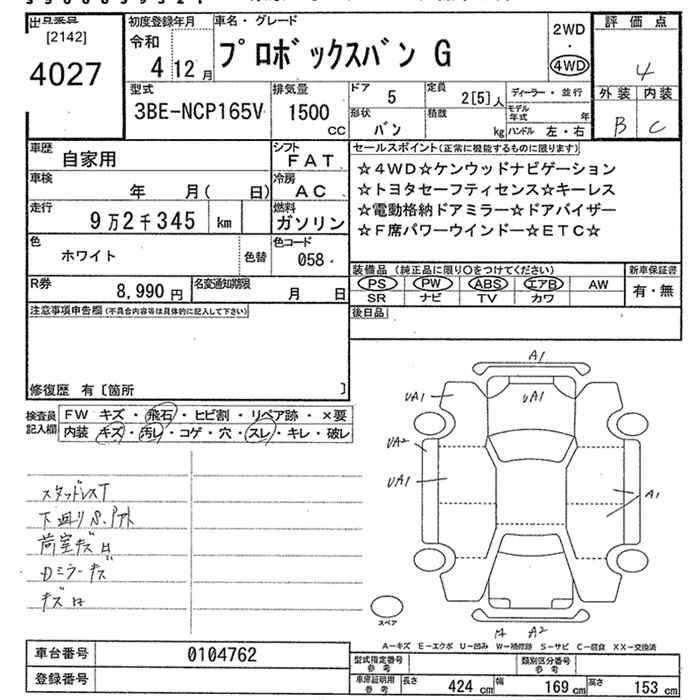 出品番号
[2142]
4027
初度登録年月
令和
4 12月
車名・グレード
プロボックスバン G
2WD
・
4WD
評価点
4
外装 内装
B C
型式
3BE-NCP165V
排気量
1500
CC
ドア
5
定員
2[5]人
ディーラー・並行
形状
バン
積載
kg
モデル年式 年
ハンドル 左・右
車歴
自家用
シフト
FAT
車検
年 月( 日)
冷房
AC
走行
9万2千345 km
燃料
ガソリン
色
ホワイト
色替
色コード
058
R券
8,990円
名変通知期限
月 日
セールスポイント(正常に機能するものに限ります)
☆4WD☆ケンウッドナビゲーション
☆トヨタセーフティセンス☆キーレス
☆電動格納ドアミラー☆ドアバイザー
☆F席パワーウインドー☆ETC☆
装備品(純正品に限り〇をつけてください)
新車保証書
PS PW ABS エアB AW
有・無
SR ナビ TV カワ
後日品
注意事項申告欄(不具合内容等は具体的に記入して下さい)
修復歴 有〔箇所 〕
検査員記入欄
FW キズ・飛石・ヒビ割・リペア跡・×要
内装 キズ・汚レ・コゲ・穴・スレ・キレ・破レ
スタッドレスT
下廻りS.Pアト
荷室キズ凹
Dミラーキズ
A1
UA1
UA1
UA2
UA1
A1
A2
スペア
A-キズ E-エクボ U-凹み W-補修跡 S-サビ C-腐食 XX-交換済
車台番号
0104762
登録番号
型式指定番号
参考
類別区分番号
参考
車庫証明用
参考
長さ
424 cm
幅
169 cm
高さ
153 cm